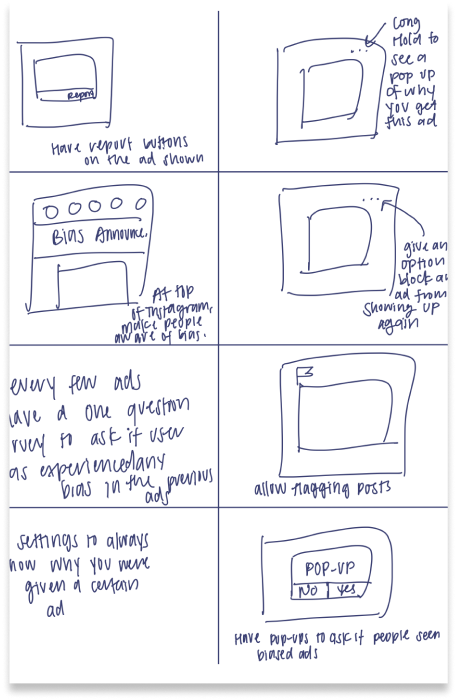 Report
Have report buttons
on the ad shown
Long
Hold to
see a
pop up
of why
you get
this ad
Bias Announce.
At top
of Instagram,
make people
aware of bias.
give an
option
block an
ad from
showing up
again
every few ads
ave a one question
rvey to ask if user
as experienced any
bias in the previous
ads
allow flagging posts
settings to always
how why you were
given a certain
ad
POP-UP
No Yes
Have pop-ups to ask if people seen
biased ads